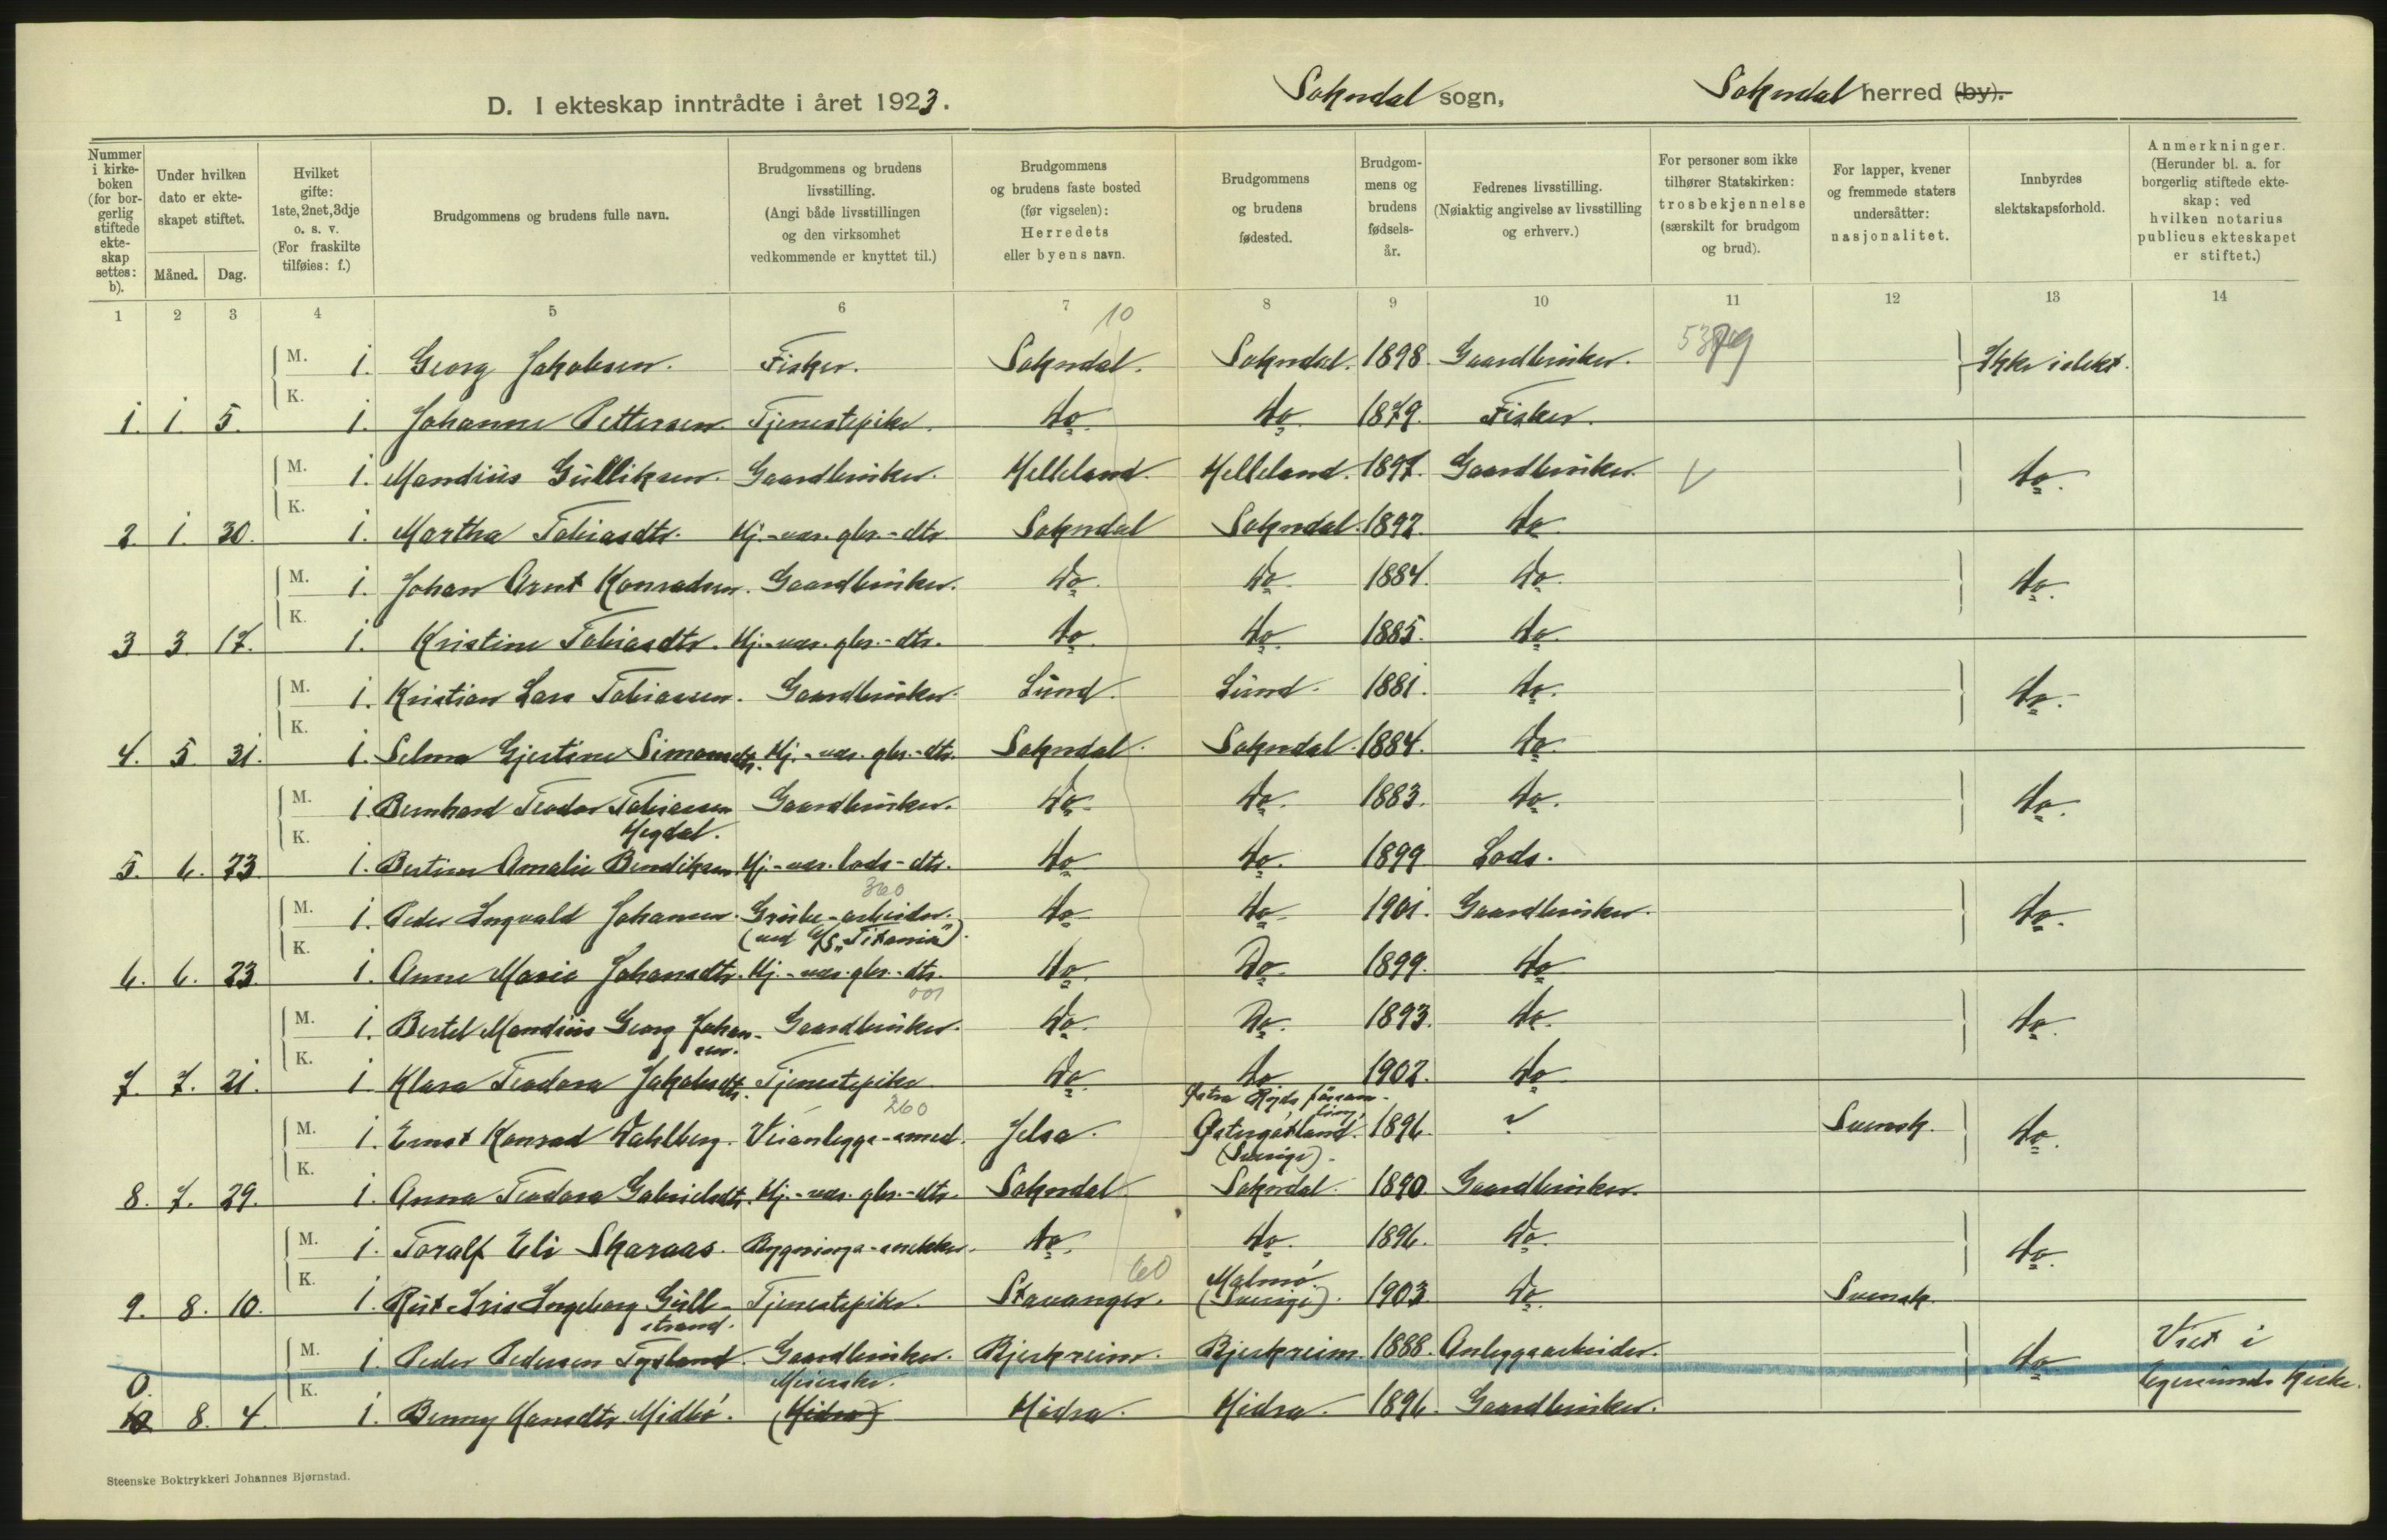 D. I ekteskap inntrådte i året 1923. Sokndal sogn, Sokndal herred (by).
Nummer i kirkeboken (for borgerlig stiftede ekteskap settes: b).
Under hvilken dato er ekteskapet stiftet.
Måned. Dag.
Hvilket gifte: 1ste, 2net, 3dje o. s. v. (For fraskilte tilføies: f.)
Brudgommens og brudens fulle navn.
Brudgommens og brudens livsstilling. (Angi både livsstillingen og den virksomhet vedkommende er knyttet til.)
Brudgommens og brudens faste bosted (før vigselen): Herredets eller byens navn.
Brudgommens og brudens fødested.
Brudgommens og brudens fødselsår.
Fedrenes livsstilling. (Nøiaktig angivelse av livsstilling og erhverv.)
For personer som ikke tilhører Statskirken: trosbekjennelse (særskilt for brudgom og brud).
For lapper, kvener og fremmede staters undersåtter: nasjonalitet.
Innbyrdes slektskapsforhold.
Anmerkninger. (Herunder bl. a. for borgerlig stiftede ekteskap: ved hvilken notarius publicus ekteskapet er stiftet.)
1 2 3 4 5 6 7 8 9 10 11 12 13 14
10
M. 1. Georg Jakobsen. Fisker. Sokndal. Sokndal. 1898. Gaardbruker. Ikke i slekt.
K. 1. 1. 5. 1. Johanne Pettersen. Tjenestepike. do. do. 1879. Fisker.
M. 1. Mandius Gulliksen. Gaardbruker. Helleland. Helleland. 1897. Gaardbruker. do.
K. 2. 1. 30. 1. Martha Tobiasdtr. Hj.-vær. gbr.-dtr. Sokndal Sokndal. 1892. do.
M. 1. Johan Arnt Konradsen. Gaardbruker. do. do. 1884. do. do.
K. 3 3 17. 1. Kristine Tobiasdtr. Hj.-vær. gbr.-dtr. do. do. 1885. do.
M. 1. Kristian Lars Tobiassen. Gaardbruker. Lund. Lund. 1881. do. do.
K. 4. 5. 31. 1. Selma Gjertine Simonsdtr. Hj.-vær. gbr.-dtr. Sokndal. Sokndal. 1884. do.
M. 1. Bernhard Teodor Tobiassen Gaardbruker. do. do. 1883. do. do.
Hegdal.
K. 5. 6. 23. 1. Bertine Amalie Bendiksen Hj.-vær. lods-dtr. do. do. 1899 Lods.
360
M. 1. Peder Ingvald Johansen. Grube-arbeider. do. do. 1901. Gaardbruker. do.
(ved A/S „Titania").
K. 6. 6. 23. 1. Anne Marie Johansdtr. Hj.-vær. gbr.-dtr. do. Do. 1899. do.
001
M. 1. Bertel Mandius Georg Johan- Gaardbruker. do. Do. 1893. do. do.
sen.
K. 7. 7. 21. 1. Klara Teodora Jakobsdtr. Tjenestepike. do. do. 1902. do.
260
M. 1. Ernst Konrad Wahlberg. Veianleggs-smed. Jelsa. Østergötland. (Sverige). 1896. ? Svensk. do.
K. 8. 7. 29. 1. Anna Teodora Gabrielsdtr. Hj.-vær. gbr.-dtr. Sokndal Sokndal. 1890. Gaardbruker.
M. 1. Toralf Eli Skaraas. Bygnings-snekker. do. do. 1896. do. do.
60
K. 9. 8. 10. 1. Rut Iris Ingeborg Gull- Tjenestepike. Stavanger. Malmö. (Sverige). 1903. do. Svensk.
strand.
M. 1. Peder Pedersen Tysland. Gaardbruker. Bjerkreim. Bjerkreim. 1888. Anleggsarbeider. do. Viet i Egersunds kirke.
0
K. 10 8. 4. 1. Benny Hansdtr Midbö. Meierske. (Hidra) Hidra. Hidra. 1896. Gaardbruker.
Steenske Boktrykkeri Johannes Bjørnstad.